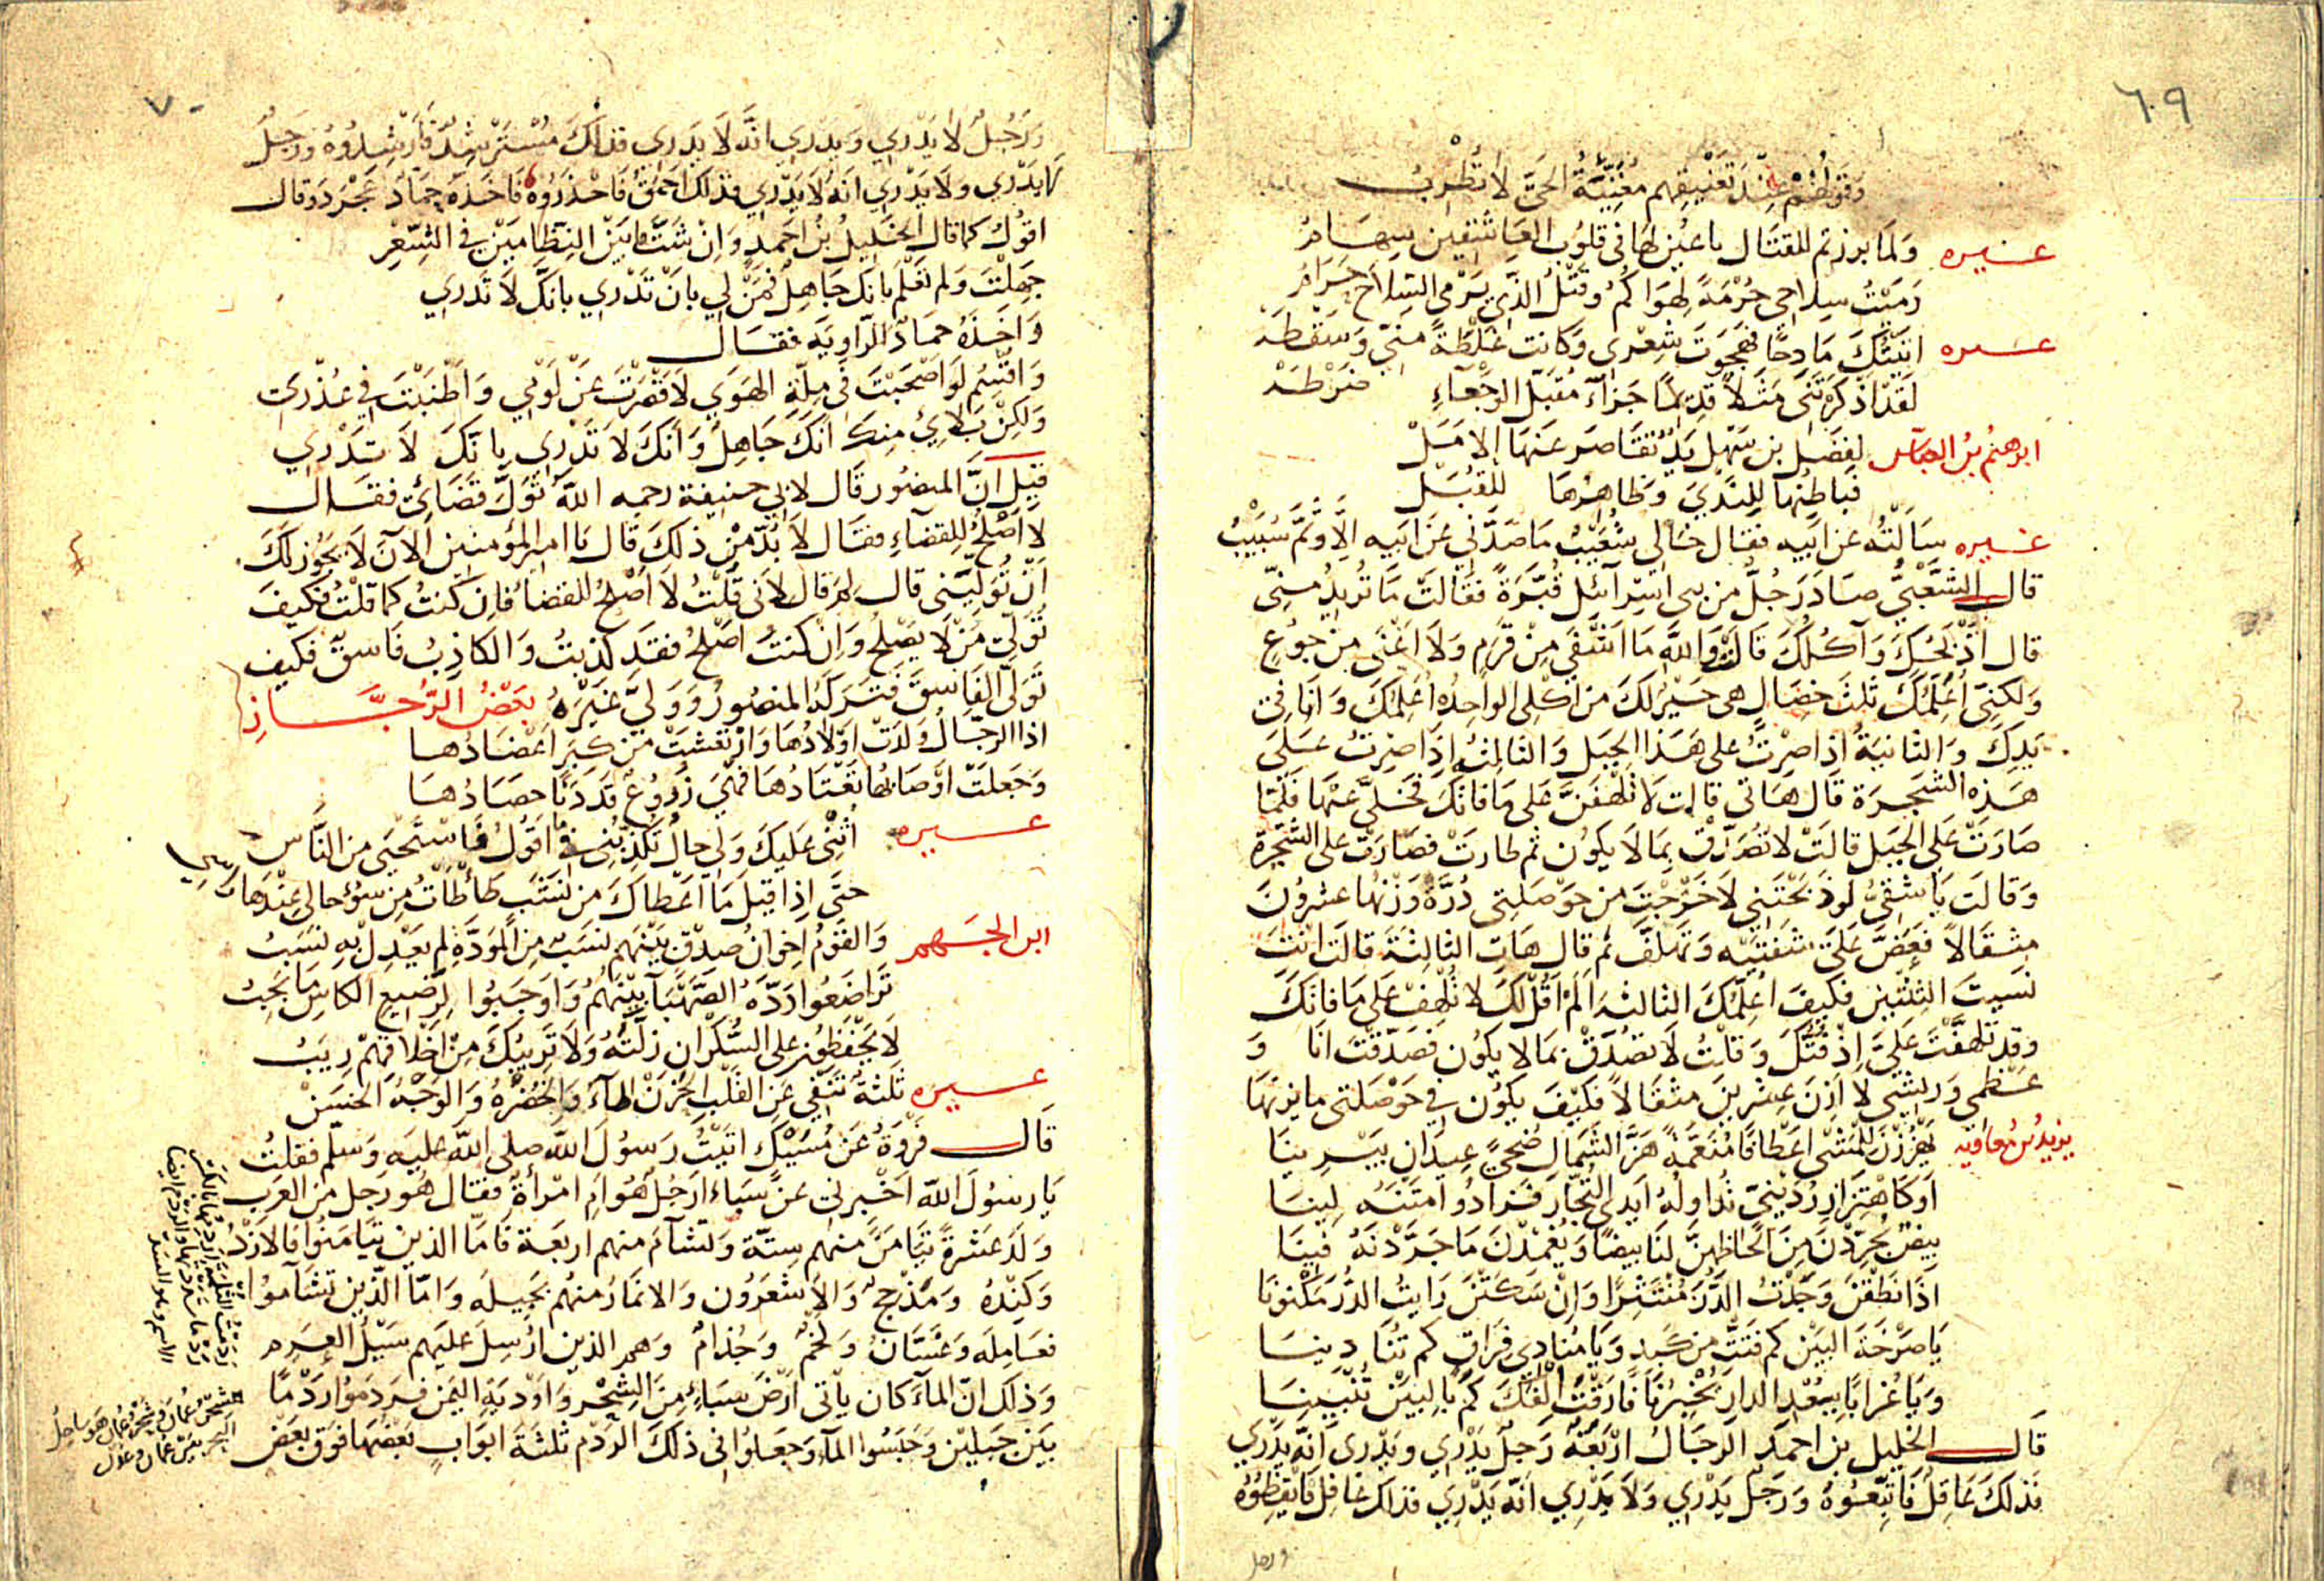 ٦٩
وَقَولُهُمْ عِنْدَ تَعْنِيفِهِم مُغَنِّيَةُ الحَيِّ لَا تُطْرِبُ
غيره وَلَمَّا برزتم للقتَال باعيُن لهَا في قلوُب العَاشقين سِهَامُ
رَمَيْتُ سِلاحِي حُرْمَةً لِهَوَاكُمُ وَقَتْلُ الذِي يَرْمي السِلاحَ حَرَامُ
غيره اتَيْتُكَ مَادِحًا فهَجَوتَ شِعْرِي وَكَانت غلْطَةً مِنّي وَسَقْطَهْ
لَقَدْ اذْكَرْتَنى مَثَلاً قدِيمًا جَزَآءُ مُقَبّل الوَجْعآءِ ضَرْطَهْ
ابرهيمُ بنُ العباس لِفَضْلِ بن سَهْلٍ يَدٌ تقَاصَر عَنهَا الامَلْ
فَبَاطِنُهَا لِلنَدَي وَظَاهِرُهَا لِلقُبَلْ
غيره سَاَلْتُه عن اَبيه فقال خَالى شُعَيْبُ
قال الشَعْبيُّ صَادَ رَجُلٌ من بنى اسرآئل قُبَّرَةً فقَالتْ مَا تُريدُ مِنّى
قال اَذْبَحُكِ وَآكُلكِ قَالَتْ وَاللّه مَا اَشْفِي مِنْ قَرَمٍ وَلَا اُغْنَى مِن جوُعٍ
وَلكنّى اُعَلِّمُكَ ثَلثَ خصَالٍ هى خَيْرٌ لكَ من اَكْلى الوَاحِدُه اُعَلِّمُكَ وَاَنَا في
يَدِكَ وَالثانيَةُ اِذا صِرْتُ على هَذا الجبَل وَالثالِثهُ اِذَا صِرتُ عَلى
هَذِه الشجَرة قَال هَاتي قالت لَا تَلْهَفَنَّ عَلى مَا فَاتَكَ فَخَلَّى عَنْهَا فَلَمّا
صَارَتْ عَلَى الجبَل قالَتْ لا تُصَدِّقْ بِمَا لَا يَكُون ثم طَارَتْ فصَارَتْ على الشجَرَة
وَقالَت يَا شقِيُّ لَو ذَبَحْتَنِي لَاخْرَجْتَ من حَوْصَلتِى دُرَّةً وَزْنُهَا عشْرُونَ
مثقَالاً فَعَضَّ عَلَى شفَتيْه وَتَلَهَّفَ ثم قال هَات الثالِثةَ قالَت انْتَ
نَسِيتَ الثِنْتَيْن فكيفَ اُعَلِّمُكَ الثالثه اَلَمْ اَقُلْ لكَ لا تَلهَفْ عَلى مَا فاتَكَ
وقد تَلهفْتَ عَلَيَّ اِذْ فُتُّكَ وَقلتُ لَا تصُدّقْ بمَا لا يكوُن فصَدّقْتَ انَا وَ
عَظْمِي وَريشي لَا اَزنُ عِشرينَ مثقَالاً فكَيْفَ يكوُن في حَوْصَلَتى مَا يزِنُهَا
يزيدُ بن مُعَاويه يَهْزُزْنَ لِلْمَشْى اعْطَافًا مُنَعَّمَةً هَزَّ الشَمَالِ ضُحىً عِيدَانَ يَبْرِينَا
اَو كَاهْتِزَازِ رُدَيْنِىّ تُدَاولُهُ اَيدِى التِجَّارِ فَزَادُوا مَتْنَهُ لِينَا
بِيضٌ يُجَرِّدْنَ مِنَ اَلحَاظِهِنَّ لَنَا بيضًا وَيُغْمِدْنَ مَا جَرَّدْنَهُ فينَا
اذَا نَطَقْنَ وَجَدْتَ الدّرَّ مُنْتَثِرًا وَاِنْ سَكَتْنَ رَايتُ الدُّرَّ مَكْنونَا
يَا صَرْخَةَ البَيْن كَم فَتَّتِّ من كبدٍ وَيَا مُنادِي فِرَاقٍ كم تُنَادِينَا
وَيَا غُرَابًا بِبُعْدِ الدارِ يُخْبِرُنَا فَارَقْتَ اَلْفَكَ كَمْ بِالبَيْنِ تُنْبِينَا
قَال الخليل بن احمد الرجَالُ ارْبَعَةٌ رَجلٌ يَدْري ويَدْرى انَّه يَدْري
فذلكَ عَاقِلٌ فَاتَّبِعُوهُ وَرَجلٌ يَدْري وَلَا يَدْري اَنّه يَدْري فذاك غافِلٌ فَاَيْقِظُوهُ
ورجل
٧٠
وَرَجُلٌ لَا يَدْري وَيَدْري انّه لَا يَدري فذاكَ مُسْتَرْشِدٌ فَاَرْشِدُوُهُ وَرَجلٌ
لَا يَدْري وَلَا يَدْري اَنّهُ لَا يَدْري فذلكَ احْمَقُ فَاحْذَرُوهُ فَاخَذَهُ حَمّاد عَجْرَد وَقال
اقوُلُ كمَا قَال الخليلُ بنُ احمَدٍ وَاِنْ شَتَّ مَا بَيْنَ النِظَامَيْنِ في الشِعْرِ
جَهِلْتَ وَلم تعْلَم بانكَ جَاهِلٌ فَمَنْ لي بانْ تَدْري بانَّكَ لَا تَدرِي
وَاخَذَهُ حمَادٌ الرّاوِيَة فقَال
وَاقْسِمُ لَوْ اَصْحَبْتَ فى مِلَّةِ الهَوَي لَاَقْصَرْتَ عَنْ لَوْمي وَاَطْنَبْتَ في عُذْرِي
وَلكِنْ بَلَائي مِنكَ اَنكَ جَاهِلٌ وَانكَ لَا تَدْرى بانّكَ لَا تَدْري
قيلَ انَّ المنصُور قَال لابي حنيفة رحمه اللّه تَوَلَّ قضَائى فقَال
لا اَصْلحُ لِلقضَاءِ فقَال لَا بُدّ مِنْ ذلكَ قَال يَا امير المؤمنين اَلآنَ لَا يَجُوز لكَ
اَنْ تُوَلّيَنى قال لِمَ قال لاَنى قُلْتُ لَا اَصْلحُ للقضَاءِ فاِن كنتُ كمَا قلتُ فكيفَ
تُوَلّي مَنْ لَا يصْلحُ وَاِنْ كنتُ اَصْلحُ فقَد كذبتُ وَالكَاذِبُ فَاسقٌ فكيف
تُوَلّى الفَاسقَ فَتَركهُ المنصُورُ وَوَلّى غَيْرَهُ بَعْضُ الرُّجَّازِ
اذا الرجَالُ وَلَدَتْ اَوْلادُهَا وَارْتعَشَتْ مِنْ كِبَرٍ اَعْضَادُهَا
وَجَعَلَتْ اَوْصَابُهَا تَعْتَادُهَا فَهْيَ زُرُوعٌ قَدْ دَنَا حصَادُهَا
غيره اُثْنى عَليكَ وَلِي حالٌ تكَذّبُنِى فى مَا اَقوُلُ فَاسْتَحْيي من النّاسِ
حتّى اِذا قيلَ مَا اعْطَاكَ مِن نَشَبٍ طَأْطَأتُ مِن سوُءِ حالى عِنْدَهَا رَاسي
ابن الجهم وَالقَوْمُ اِخوَانُ صِدْقٍ بَيْنَهم نسَبٌ من المَوَدَّةِ لم يعْدِلْ بهِ نسَبُ
تَرَاضَعُوا دَرَّةَ الصَّهْبَآءِ بَيْنَهُمُ وَاَوْجَبُوا لِرَضيعِ الكاسِ مَا يَجِبُ
لَا يَحْفَظُونَ عَلى السَّكْرَانِ زلَّتَهُ وَلَا تَريبُكَ مِنْ اَخْلَاقِهِمْ رِيَبُ
غيره ثَلثةٌ تَنْفي عَنِ القَلْبِ الحَزَنْ المَآءُ وَالخُضْرَةُ وَالوَجْهُ الحَسَنْ
قَال فَرْوَةُ بْن مُسَيْك اتيْتُ رَسوُلَ اللّه صلى اللّه عليه وَسلّم فقلتُ
يَا رسوُلَ اللّه اَخْبرني عَنْ سَبَاء اَرَجُلٌ هُوَ اَم امْراَةٌ فقَال هُو رَجل مِن العَرَب
وَلَدَ عَشَرةً تَيَامَنَ منهم سِتّة وَتشَآءَمَ منهم اربَعَة فامّا الذين تَيَامَنُوا فالازْدُ
وَكنْدهُ وَمَذْحِجٌ وَالاَشعَرُون وَالانمَارُ منهُم بَجيله وَامّا الذين تشَآموُا
فعَامِلَه وَغَسّان وَلَخْمٌ وَجُذامٌ وَهم الذين اُرْسِلَ عَليهم سَيْلُ العَرِم
وَذلكَ انّ المآءَ كان يأتى اَرْضَ سَبَاءٍ مِنَ الشِحْر وَاَوْديَةِ اليَمن فرَدَمُوا رَدْمًا
بَينَ جَبليْن وَحَبَسُوا المآءَ وَجعَلوُا في ذلكَ الرَدْم ثلثةَ ابوَابٍ بَعْضُهَا فَوقَ بَعْض
رَدَمْتُ الثُلْمَةَ
الاسم وهو السدّ
الشِحْر شِحْرُ عُمَان وهو سَاحلُ
البحر بين عُمَان وعدن